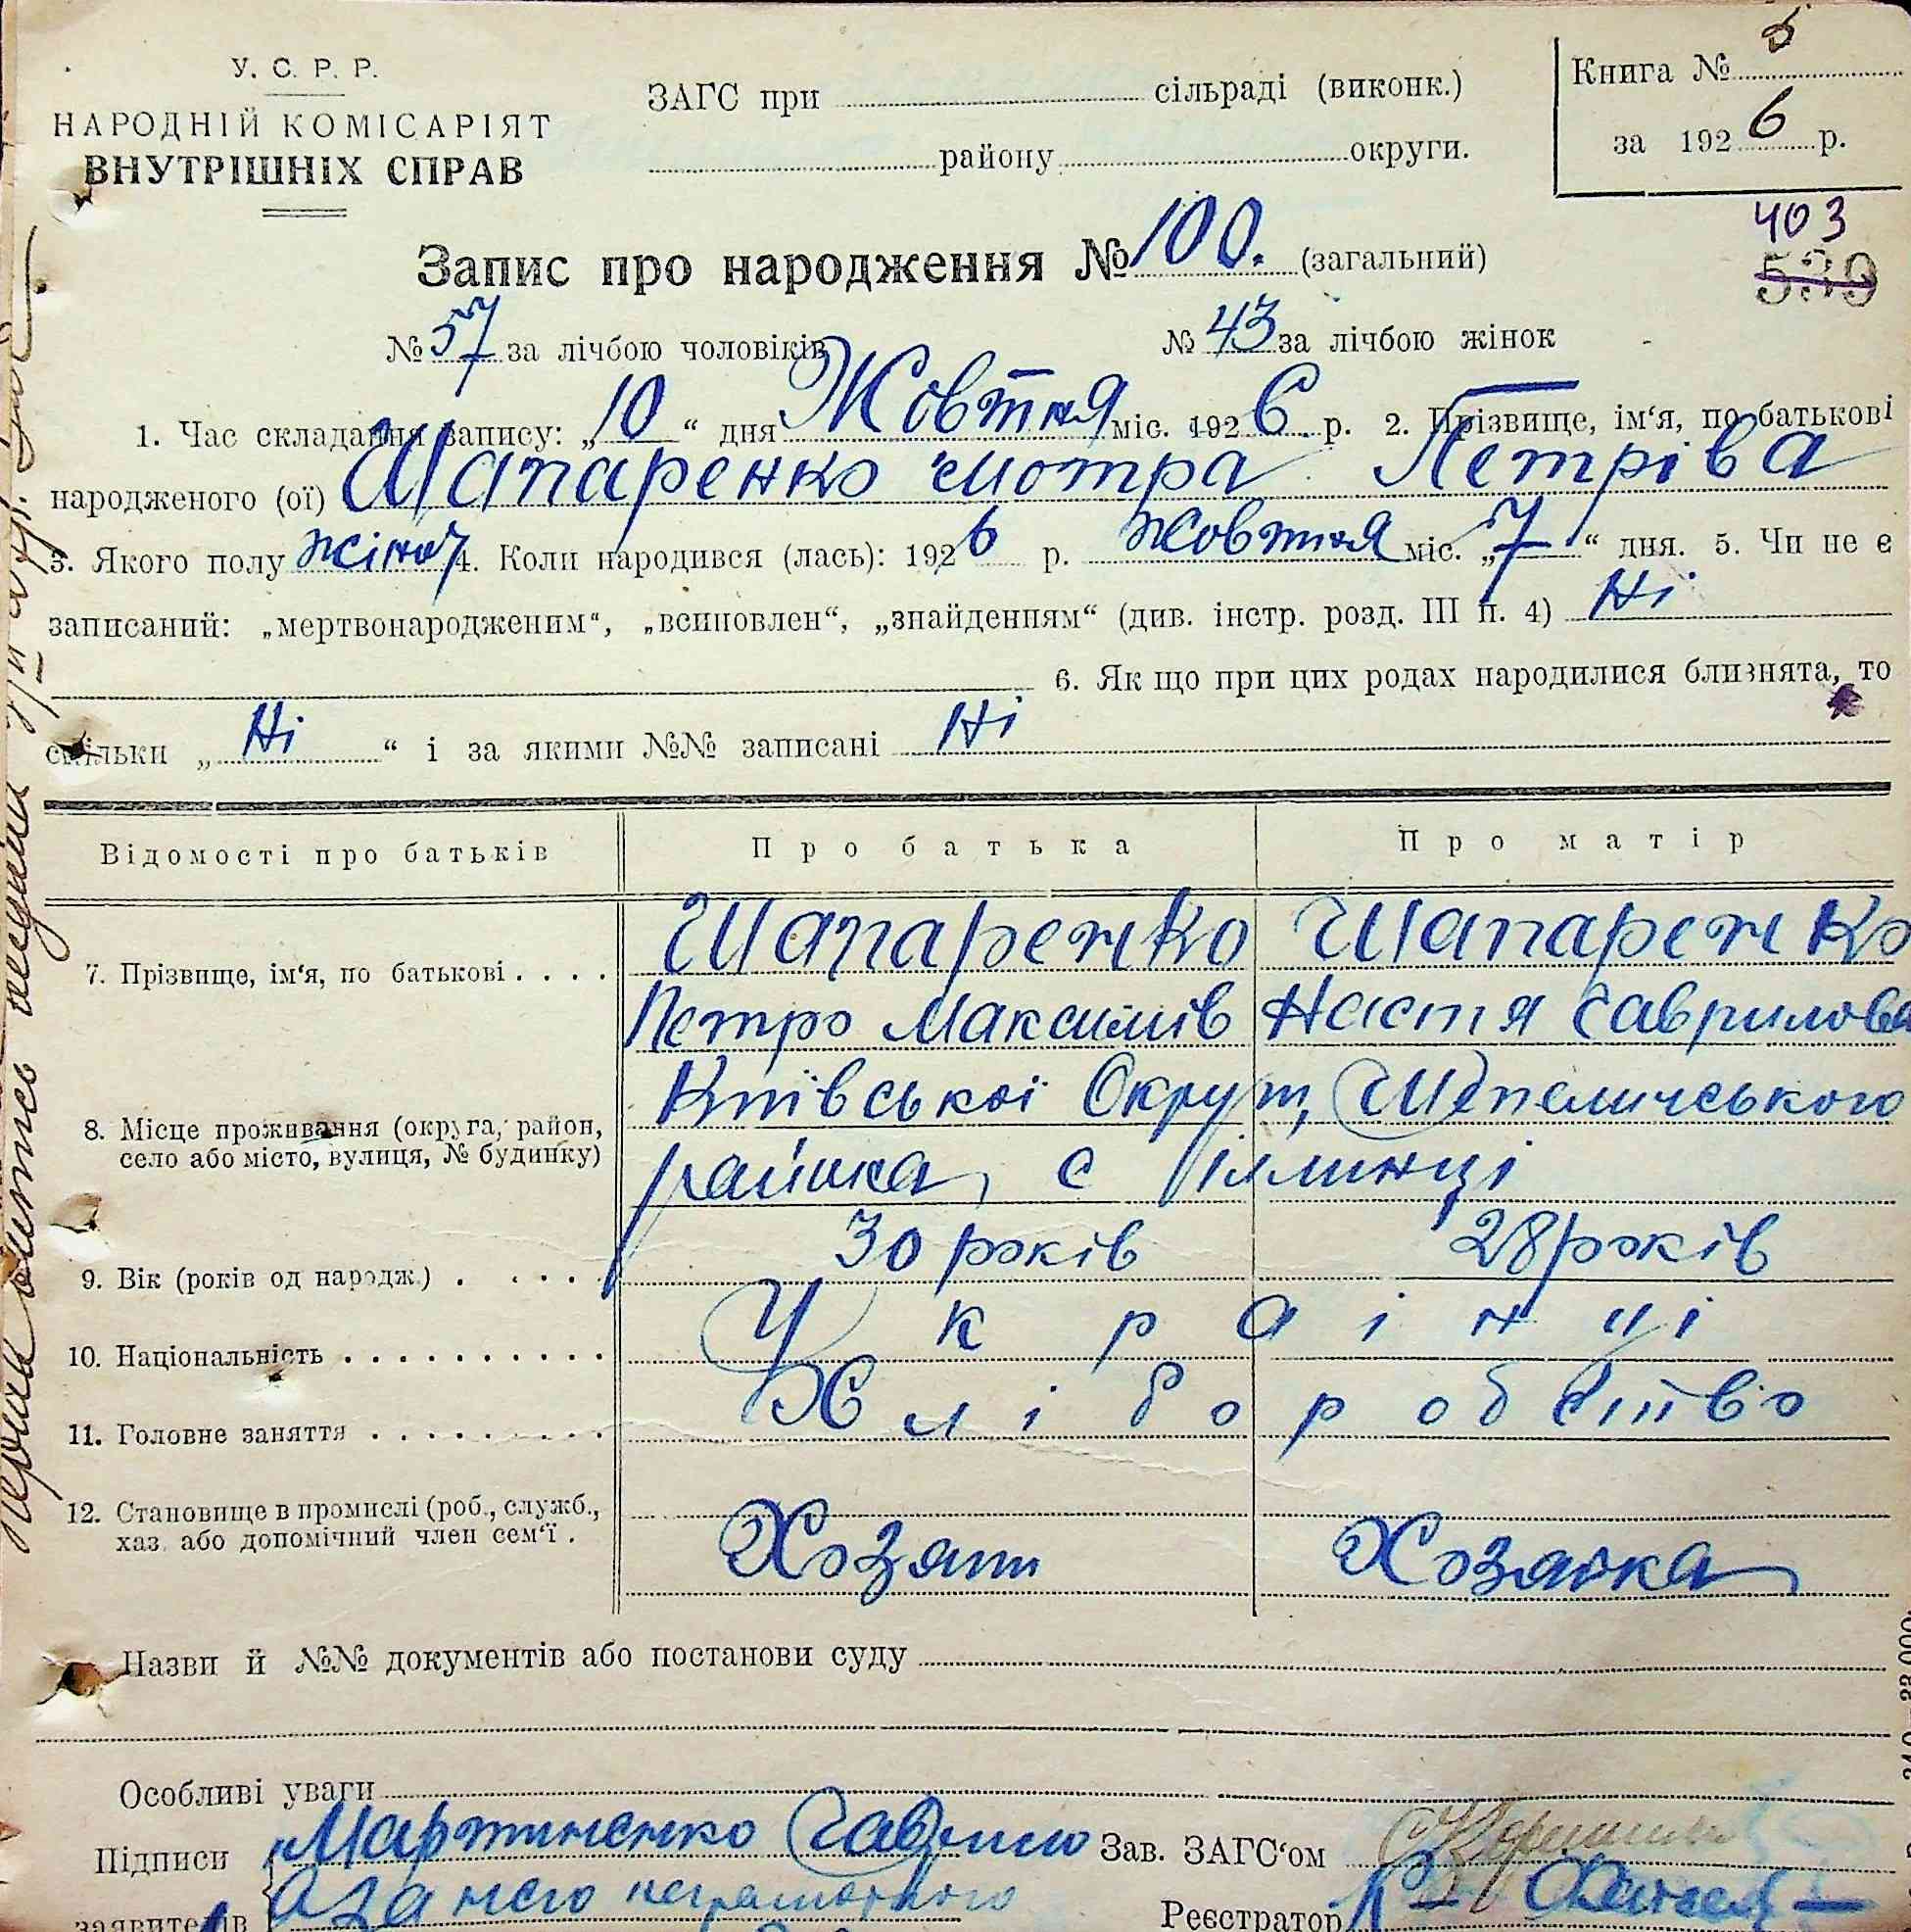 У. С. Р. Р.
НАРОДНІЙ КОМІСАРІЯТ
ВНУТРІШНІХ СПРАВ
ЗАГС при сільраді (виконк.)
району округи.
Книга № 5
за 1926 р.
403
539
Запис про народження № 100. (загальний)
№ 57 за лічбою чоловіків № 43 за лічбою жінок
1. Час складання запису: „10“ дня Жовтня міс. 1926 р. 2. Прізвище, ім‘я, по батькові
народженого (ої) Шапаренко Мотра Петрівa
3. Якого полу жіноч 4. Коли народився (лась): 1926 р. жовтня міс. „7“ дня. 5. Чи не є
записаний: „мертвонародженим“, „всиновлен“, „знайденням“ (див. інстр. розд. III п. 4) Ні
6. Як що при цих родах народилися близнята, то
скільки „ Ні “ і за якими №№ записані Ні
Відомості про батьків Про батька Про матір
7. Прізвище, ім‘я, по батькові . . . . Шапаренко Шапаренко
Петро Максимів Настя Гаврилова
8. Місце проживання (округа, район, село або місто, вулиця, № будинку) Київської Округи, Шепеличського
района, с Іллинці
9. Вік (років од народж.) . . . . . 30 років 28 років
10. Національність . . . . . . . . . . . Українці
11. Головне заняття . . . . . . . . . Хліборобство
12. Становище в промислі (роб., служб.,
хаз. або допомічний член сем‘ї . Хозяїн Хозяйка
Назви й №№ документів або постанови суду
Особливі уваги
Підписи Мартиненко Гаврило Зав. ЗАГС‘ом
заявителів а за него неграмотного Реєстратор